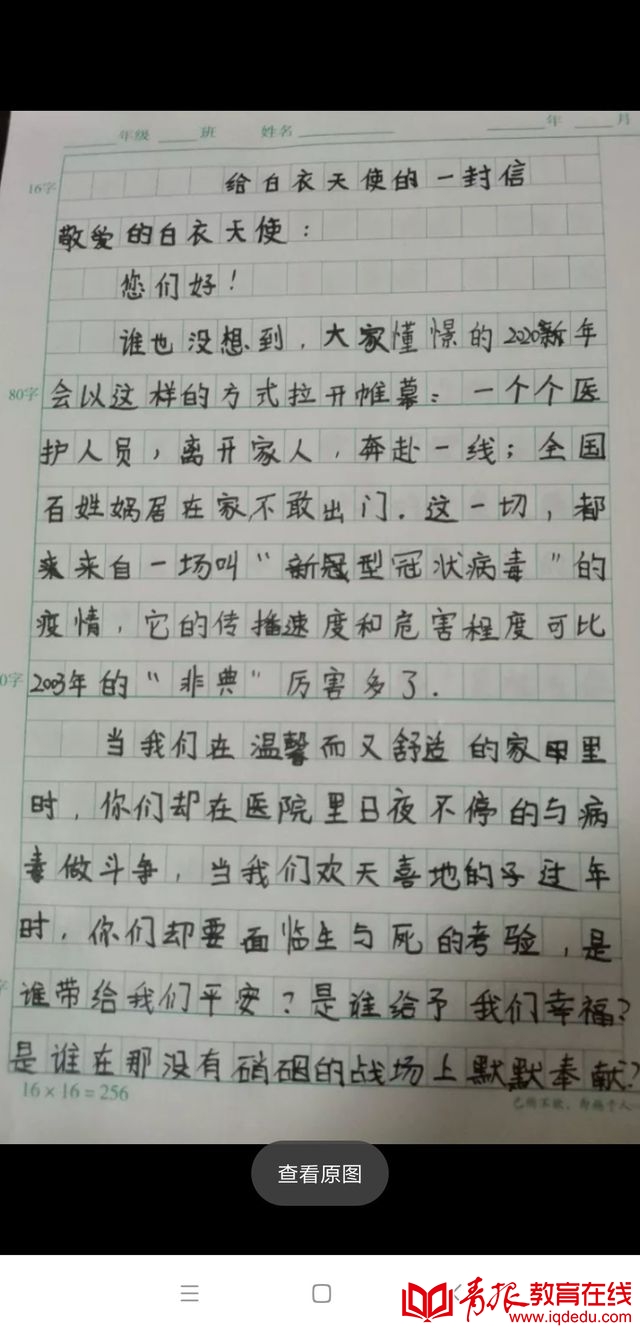 年级 班 姓名 年 月
16字
给白衣天使的一封信
敬爱的白衣天使：
您们好！
谁也没想到，大家憧憬的2020新年
80字
会以这样的方式拉开帷幕：一个个医
护人员，离开家人，奔赴一线；全国
百姓娲居在家不敢出门．这一切，都
来自一场叫“新冠型冠状病毒”的
疫情，它的传播速度和危害程度可比
0字
2003年的“非典”厉害多了．
当我们在温馨而又舒适的家里
时，你们却在医院里日夜不停的与病
毒做斗争，当我们欢天喜地的过年
时，你们却要面临生与死的考验，是
字
谁带给我们平安？是谁给予我们幸福？
是谁在那没有硝烟的战场上默默奉献？
16×16=256
己所不欲，勿施于人
查看原图
青报教育在线
www.iqdedu.com